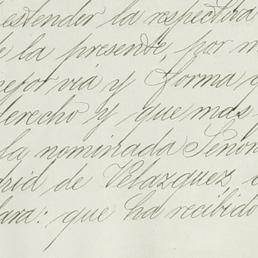 estender la respectiva
e la presente, por m
mejor via y forma q
derecho y que mas
la nominada Señor
drid de Velazquez,
lara: que ha recibido